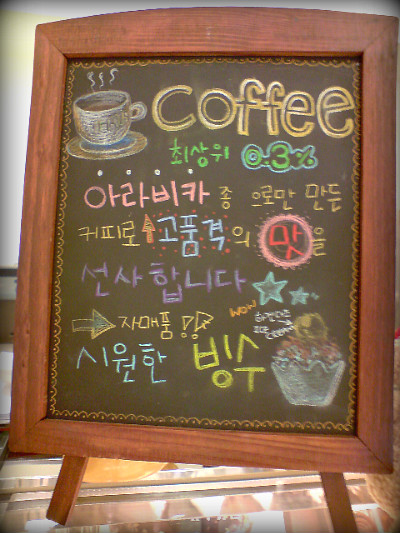 coffee
최상위 0.3%
아라비카 종 으로만 만든
커피로 고품격의 맛을
선사합니다
자매품
WOW!
시원한 빙수